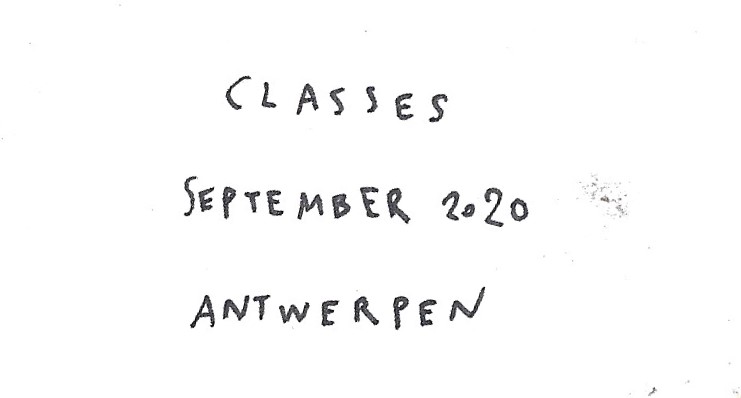 CLASSES
SEPTEMBER 2020
ANTWERPEN